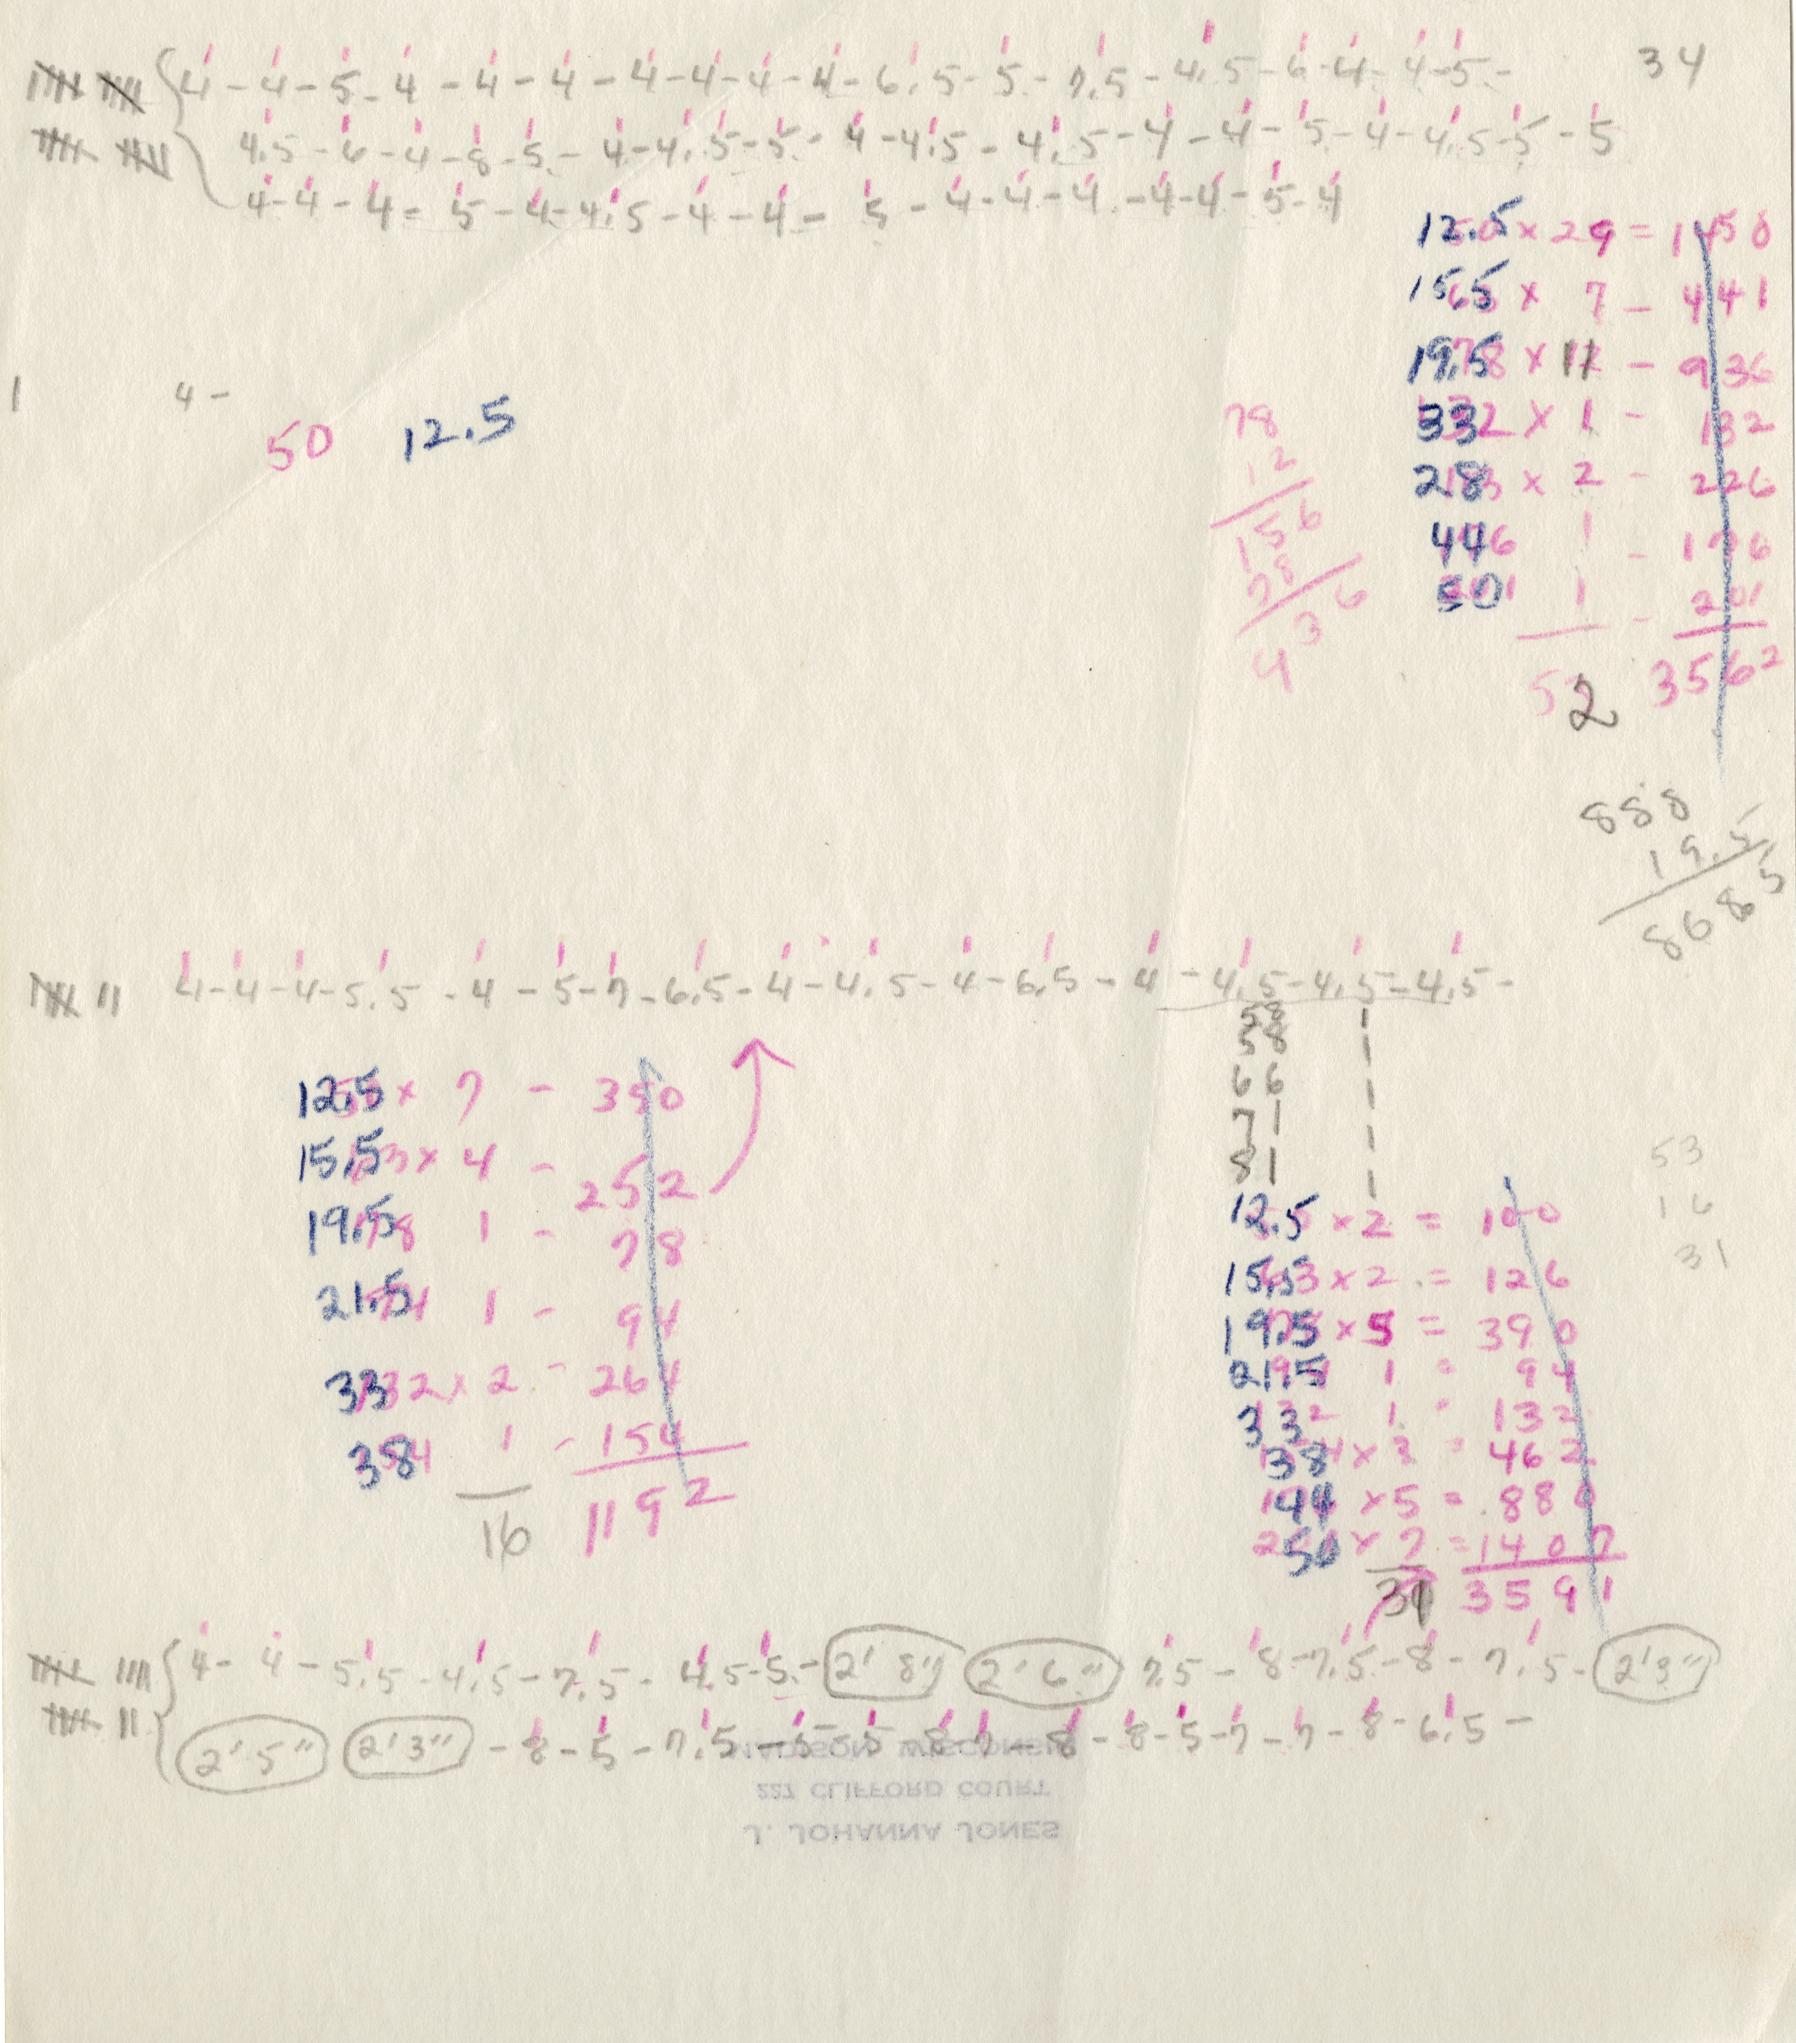 4 - 4 - 5 - 4 - 4 - 4 - 4 - 4 - 4 - 4 - 6.5 - 5 - 7.5 - 4.5 - 6 - 4 - 4 - 5 - 34
4.5 - 6 - 4 - 8 - 5 - 4 - 4.5 - 5 - 4 - 4.5 - 4.5 - 4 - 4 - 5 - 4 - 4.5 - 5 - 5
4 - 4 - 4 - 5 - 4 - 4.5 - 4 - 4 - 5 - 4 - 4 - 4 - 4 - 4 - 5 - 4
12.5 × 29 = 1450
15.5 × 7 - 441
19.5 × 11 - 936
33 × 1 - 132
28 × 2 - 226
44 1 - 176
50 1 - 201
52 3562
1 4 -
50 12.5
78
12
156
78
936
888
19.5
8685
4 - 4 - 4 - 5.5 - 4 - 5 - 7 - 6.5 - 4 - 4.5 - 4 - 6.5 - 4 - 4.5 - 4.5 - 4.5 -
58
58
66
71
81
12.5 × 7 - 350
15.5 × 4 - 252
19.5 1 - 78
21.5 1 - 94
33 × 2 - 264
38 1 - 154
16 1192
53
16
31
12.5 × 2 = 100
15.5 × 2 = 126
19.5 × 5 = 390
21.5 1 = 94
33 1 = 132
38 × 3 = 462
44 × 5 = 880
50 × 7 = 1407
3591
4 - 4 - 5.5 - 4.5 - 7.5 - 4.5 - 5 - 2'8" 2'6" 7.5 - 8 - 7.5 - 8 - 7.5 - 2'3"
2'5" 2'3" - 8 - 5 - 7.5 - 5 - 5 - 8 - 7 - 8 - 8 - 5 - 7 - 7 - 8 - 6.5 -
J. JOHANNA JONES
227 CLIFFORD COURT
MADISON, WISCONSIN